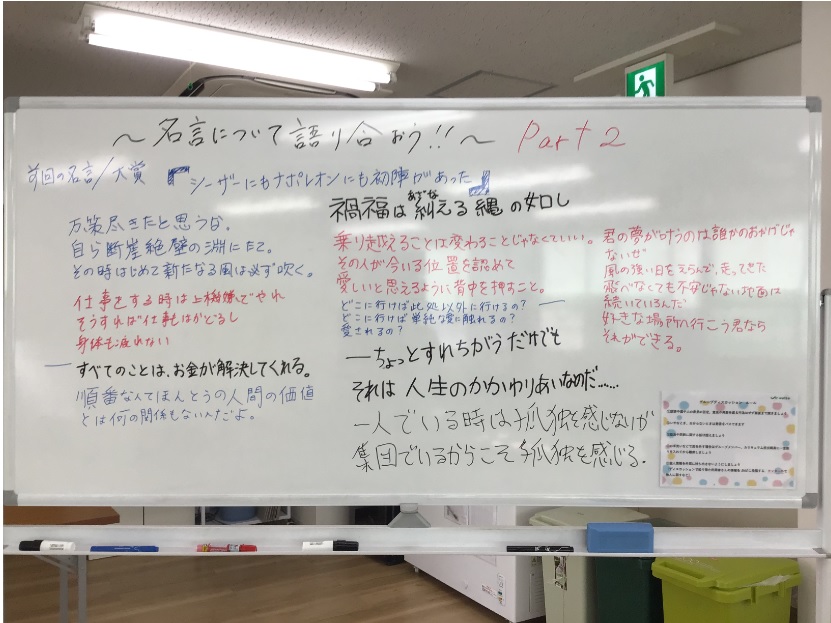 ～名言について語り合おう!!～ Part 2
前回の名言/大賞 『シーザーにもナポレオンにも初陣があった』
万策尽きたと思うな。
自ら断崖絶壁の淵にたて。
その時はじめて新たなる風は必ず吹く。
仕事をする時は上機嫌でやれ
そうすれば仕事もはかどるし
身体も疲れない
すべてのことは、お金が解決してくれる。
順番なんてほんとうの人間の価値
とは何の関係もないんだよ。
あざな
禍福は糾える縄の如し
乗り越えることは変わることじゃなくていい。
その人が今いる位置を認めて
愛しいと思えるように背中を押すこと。
どこに行けば此処以外に行けるの?
どこに行けば単純な愛に触れるの?
愛されるの?
ーちょっとすれちがうだけでも
それは人生のかかわりあいなのだ……
一人でいる時は孤独を感じないが
集団でいるからこそ孤独を感じる.
君の夢が叶うのは誰かのおかげじゃ
ないぜ
風の強い日をえらんで、走ってきた
飛べなくても不安じゃない地面は
続いているんだ
好きな場所へ行こう君なら
それができる。